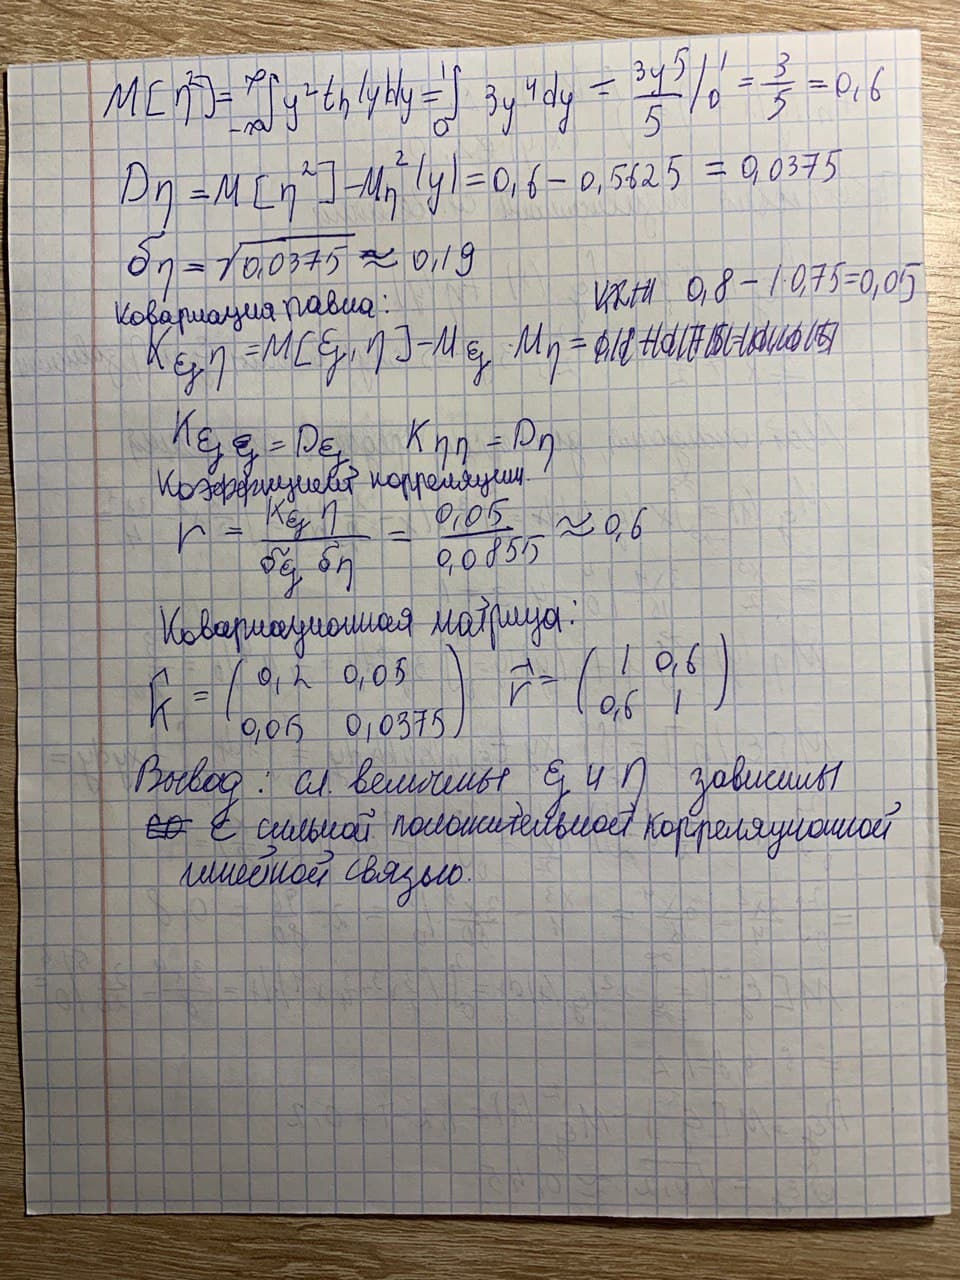 M[η²] = ∫_{-∞}^{∞} y² f_η(y)dy = ∫_0^1 3y⁴dy = 3y⁵/5 |_0^1 = 3/5 = 0,6
Dη = M[η²] - M_η²(y) = 0,6 - 0,5625 = 0,0375
ση = √0,0375 ≈ 0,19
Ковариация равна:
0,8 - 1·0,75 = 0,05
K_ξη = M[ξ,η] - M_ξ · M_η =
K_ξξ = D_ξ K_ηη = D_η
Коэффициент корреляции.
r = K_ξη / σ_ξ σ_η = 0,05 / 0,0855 ≈ 0,6
Ковариационная матрица:
K = (0,2 0,05
0,05 0,0375) r = (1 0,6
0,6 1)
Вывод: сл. величины ξ и η зависимы
с сильной положительной корреляционной
линейной связью.